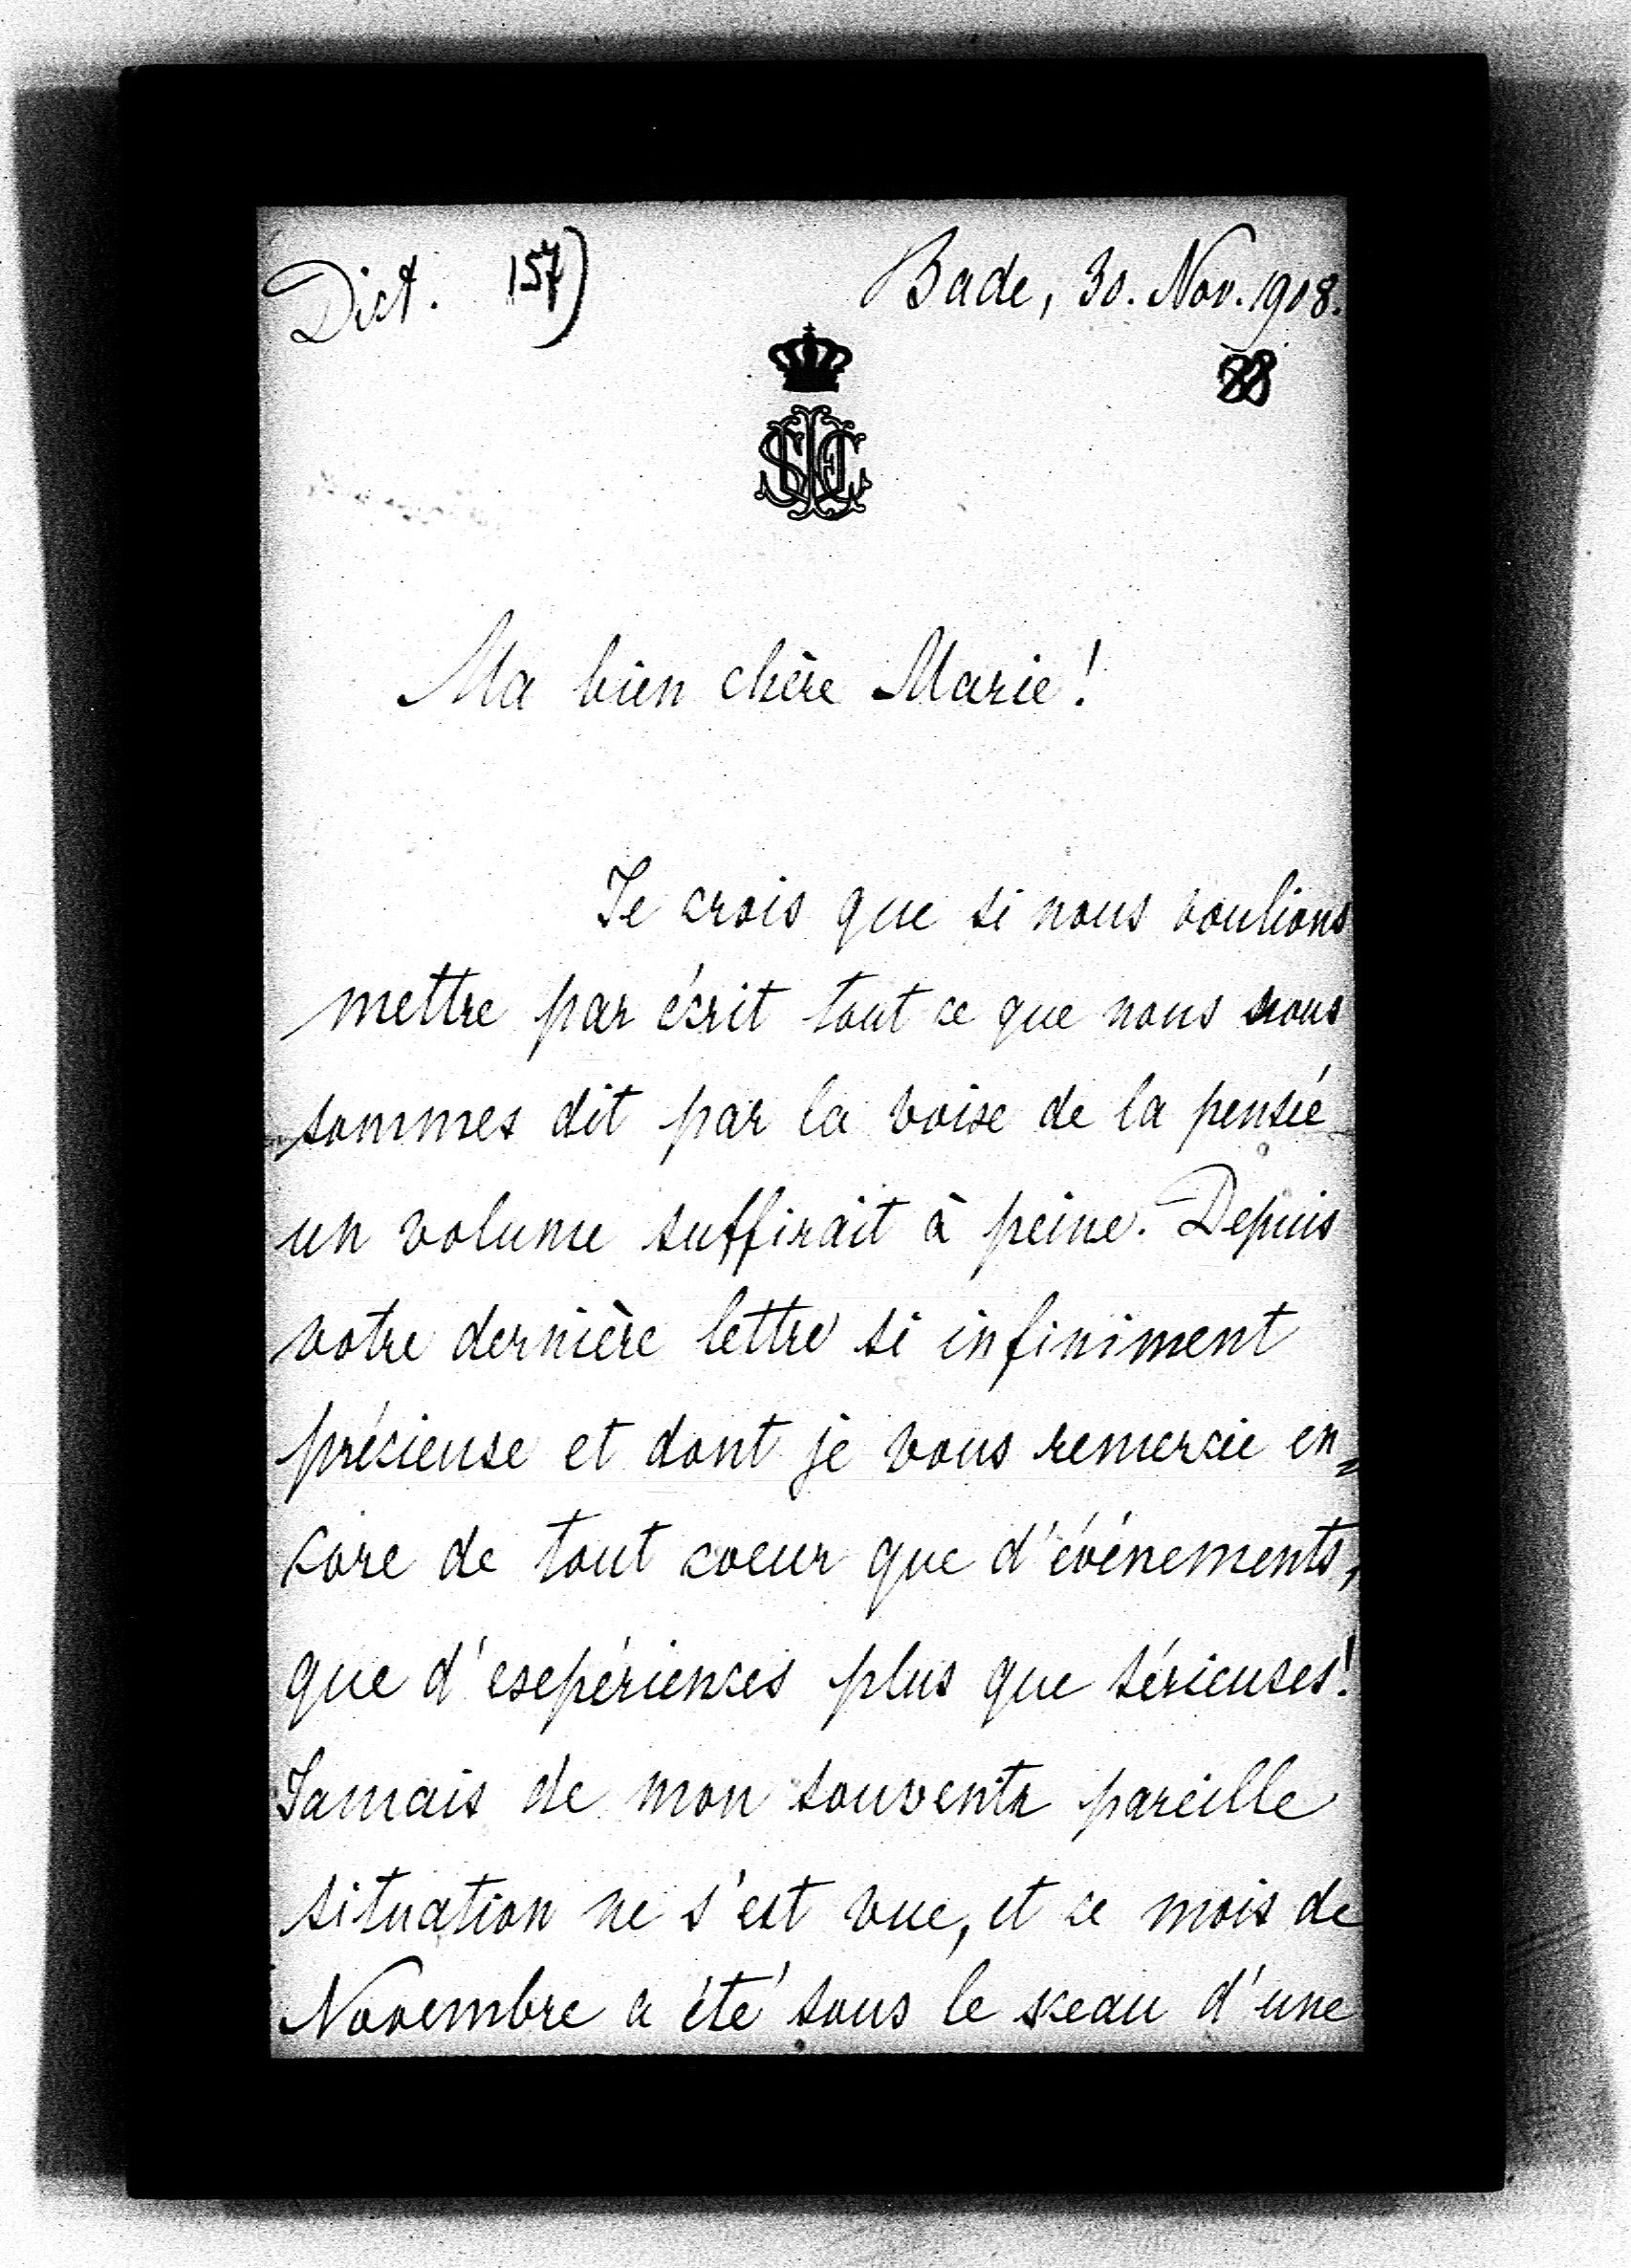 Dict. 157) Bade, 30. Nov. 1908.
Ma bien chère Marie!
Je crois que si nous voulions
mettre par écrit tout ce que nous nous
sommes dit par la voix de la pensée
un volume suffirait à peine. Depuis
votre dernière lettre si infiniment
précieuse et dont je vous remercie en=
core de tout coeur que d'événements,
que d'expériences plus que sérieuses!
Jamais de mon souvenir pareille
situation ne s'est vue, et ce mois de
Novembre a été sous le sceau d'une